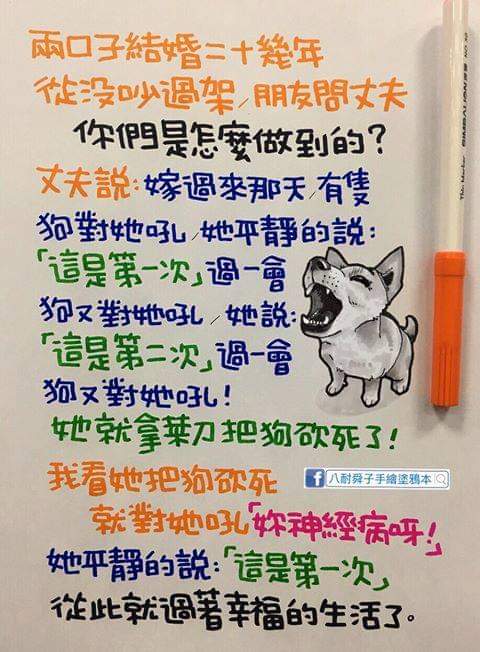 兩口子結婚二十幾年
從沒吵過架/朋友問丈夫
你們是怎麼做到的?
丈夫說:嫁過來那天/有隻
狗對她吼/她平靜的說:
「這是第一次」過一會
狗又對她吼/她說:
「這是第二次」過一會
狗又對她吼!
她就拿菜刀把狗砍死了!
我看她把狗砍死
就對她吼「妳神經病呀!」
她平靜的說:「這是第一次」
從此就過著幸福的生活了。
f 八耐舜子手繪塗鴉本